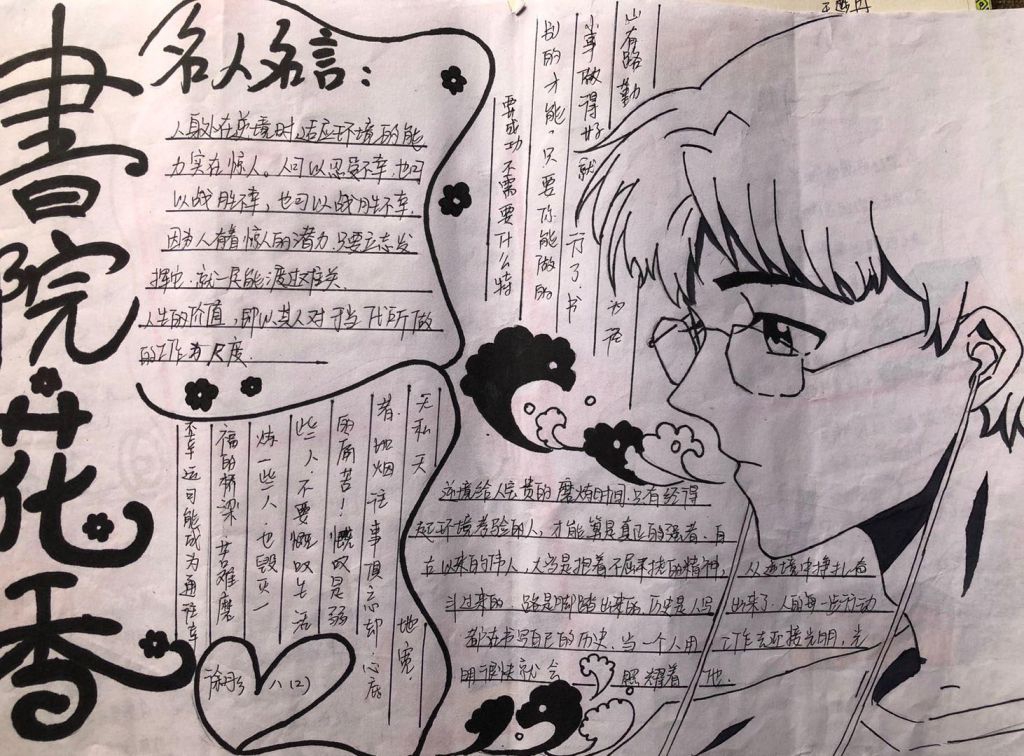 書院花香
名人名言：
人身处在逆境时，适应环境的能
力实在惊人。人可以忍受不幸，也可
以战胜不幸，也可以战胜不幸，
因为人有着惊人的潜力，只要立志发
挥它，就一定能渡过难关。
人生的价值，即以其人对于当代所做
的工作为尺度。
山有路勤
为径
小事做得好就
行了，书
别的才能，只要你能做的
要成功不需要什么特
无私天
地宽。
着，地烟往事顶忘却，心底
的痛苦！慨叹是弱
些人，不要慨叹生活
炼一些人，也毁灭一
福的桥梁，苦难磨
不幸运可能成为通往幸
八(2)
逆境给人宝贵的磨炼时间，只有经得
起环境考验的人，才能算是真正的强者。自
古以来的伟人，大多是抱着不屈不挠的精神，从逆境中挣扎奋
斗过来的。路是脚踏出来的，历史是人写出来了，人的每一步行动
都在书写自己的历史。当一个人用工作去迎接光明，光
明很快就会照耀着他。